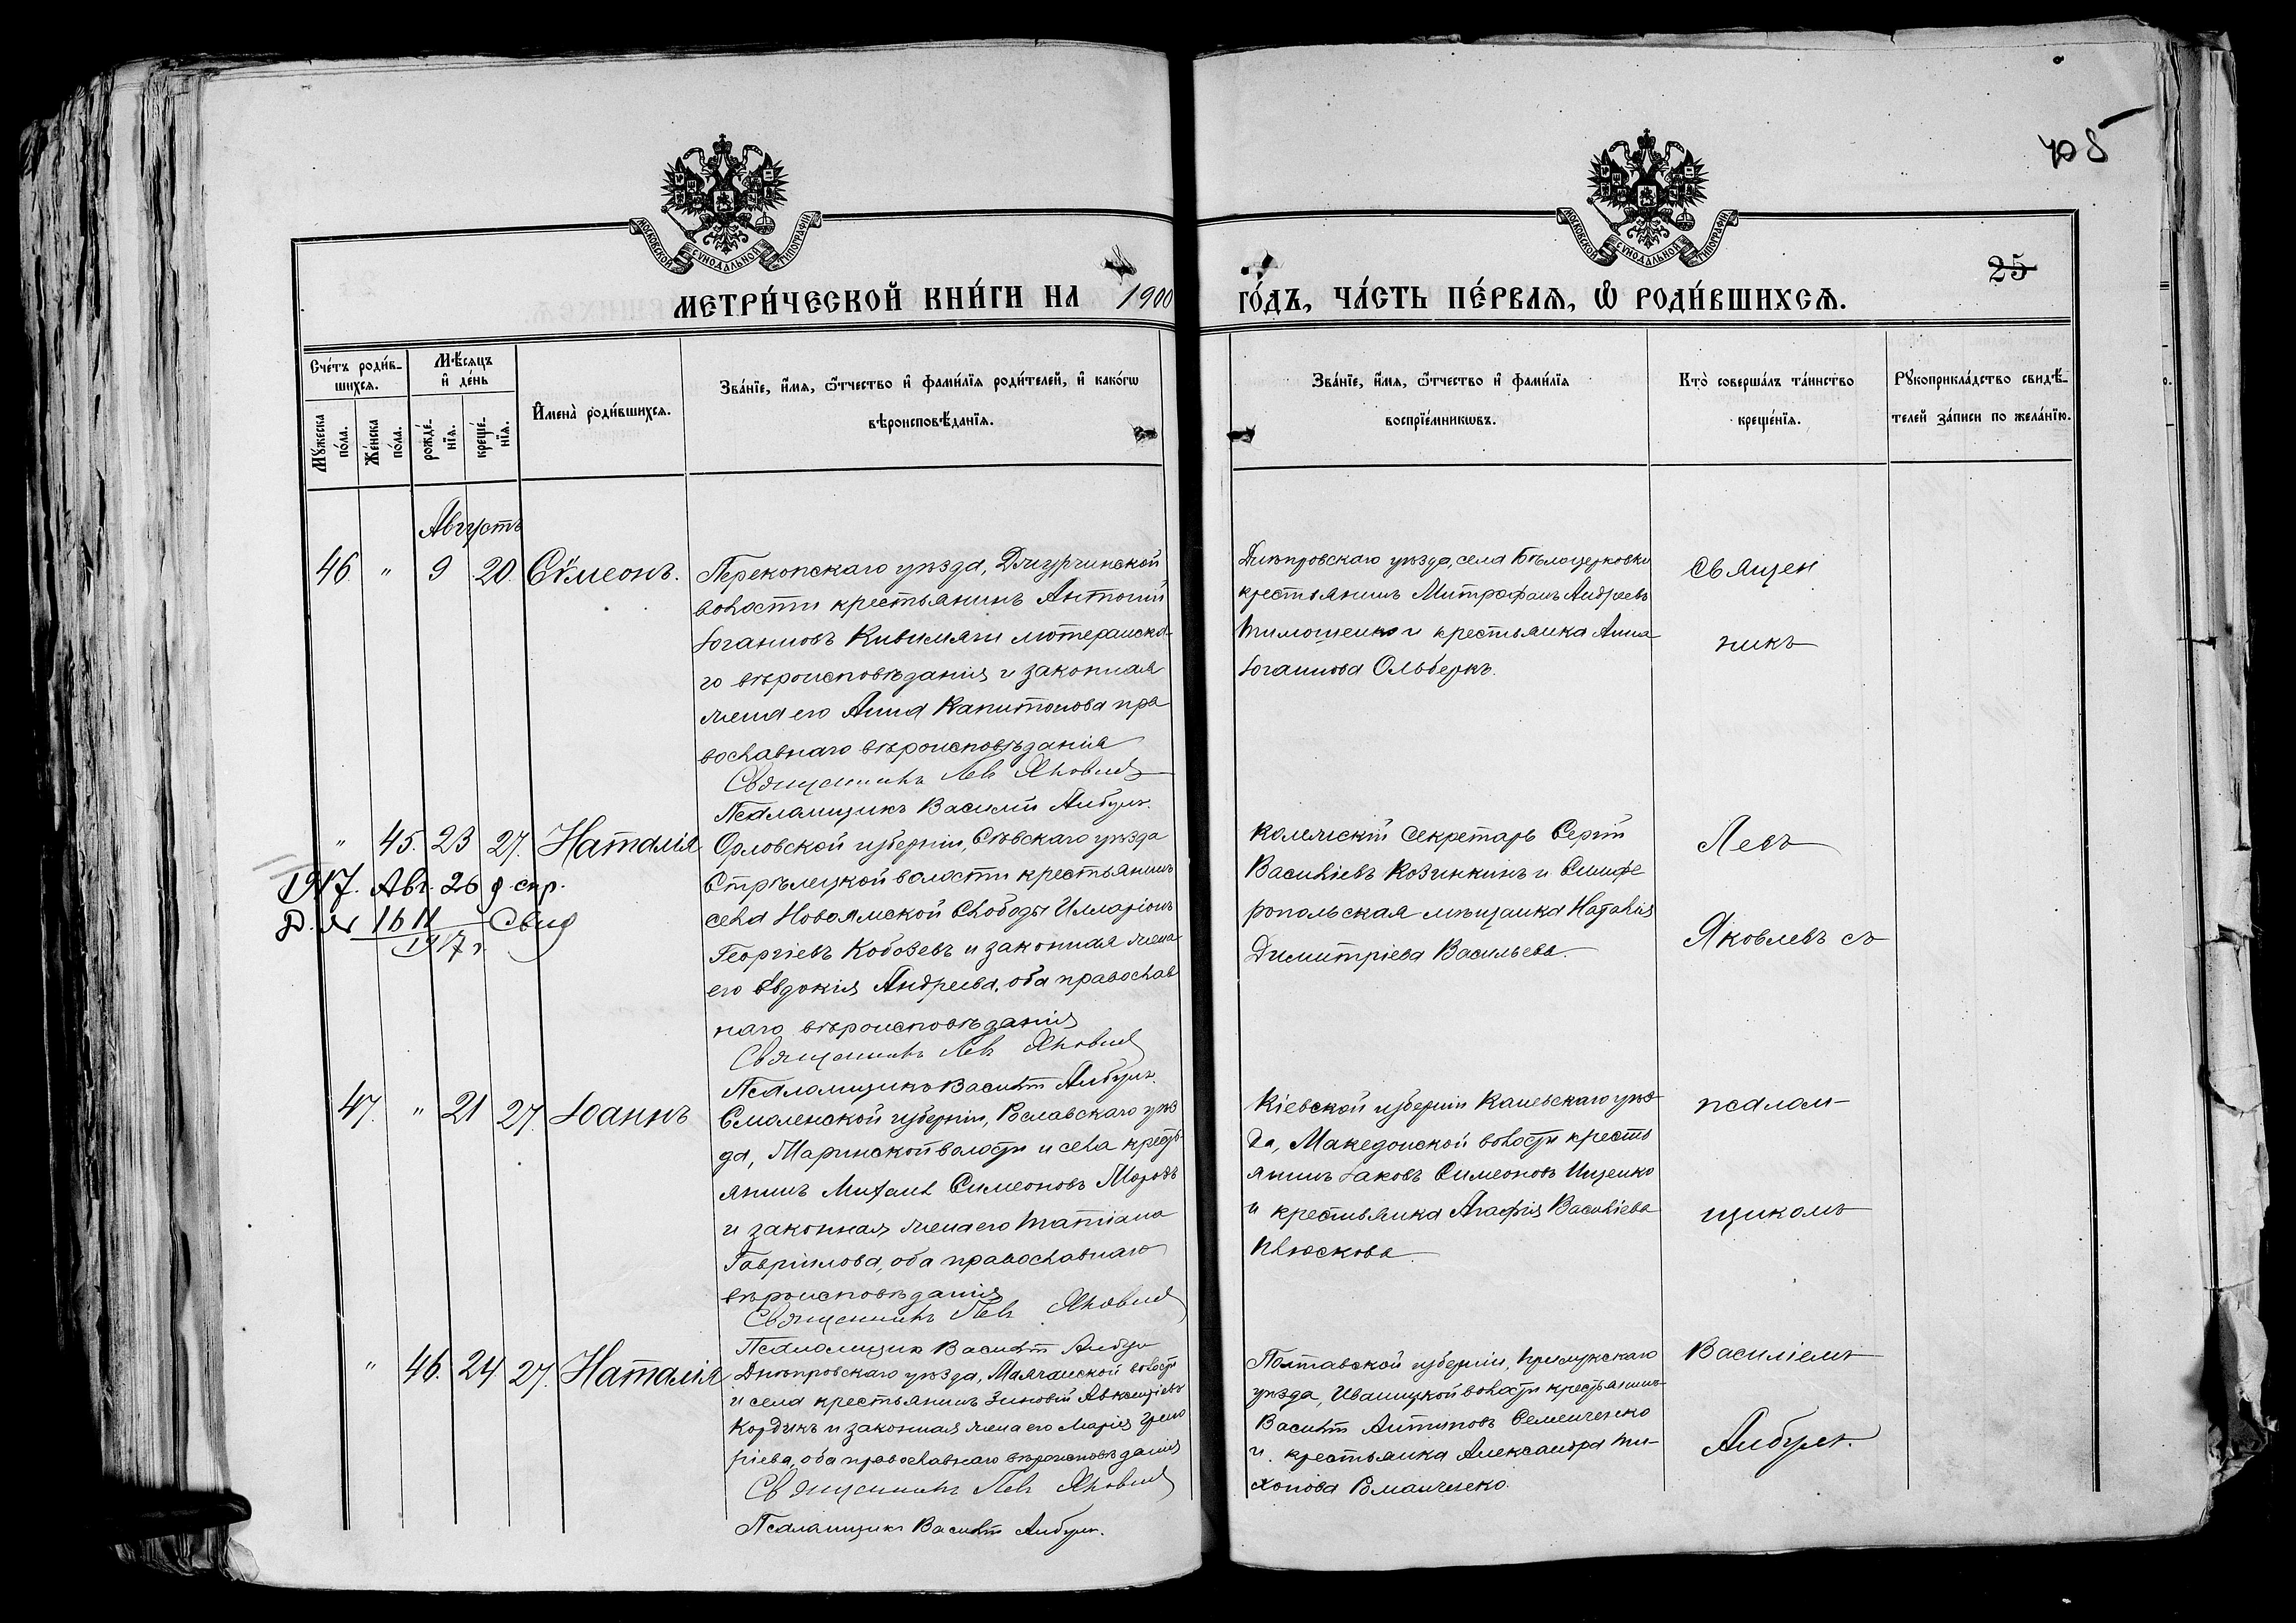 405
МОСКОВСКОЙ СѴНОДАЛЬНОЙ ТИПОГРАФІИ
МОСКОВСКОЙ СѴНОДАЛЬНОЙ ТИПОГРАФІИ
25
МЕТРИ́ЧЕСКОЙ КНИ́ГИ НА 1900 ГО́ДЪ, ЧА́СТЬ ПЕ́РВАѦ, Ѡ҆ РОДИ́ВШИХСѦ.
Сче́тъ роди́в-
шихсѧ.
Мꙋ́жеска
по́ла.
Же́нска
по́ла.
Мѣ́сѧцъ
и҆ де́нь
рожде́-
нїѧ.
креще́-
нїѧ.
И҆мена̀ роди́вшихсѧ.
Зва́нїе, и҆́мѧ, ѻ҆́тчество и҆ фами́лїѧ роди́телей, и҆ како́гѡ
вѣроисповѣ́данїѧ.
Зва́нїе, и҆́мѧ, ѻ҆́тчество и҆ фами́лїѧ
воспрїе́мникѡвъ.
Кто̀ соверша́лъ та́инство
креще́нїѧ.
Рꙋкоприкла́дство свидѣ́-
телей за́писи по жела́нїю.
Августъ
46. " 9 20. Сѵмеонъ.
Перекопскаго уѣзда, Джурчинской
волости крестьянинъ Антоній
Іоганновъ Кивимяги лютеранска-
го вѣроисповѣданія и законная
жена его Анна Капитонова пра
вославнаго вѣроисповѣданія
Священникъ Левъ Яковлев
Псаломщикъ Василій Анбул.
Днѣпровскаго уѣзда, села Бѣлоцерковки
крестьянинъ Митрофанъ Андреевъ
Тимошенко и крестьянка Анна
Іоганнова Ольберкъ.
Священ
никъ
" 45. 23 27. Наталія
1917. Авг. 26 д. спр.
1611
1917 г. Свид
Орловской губерніи, Сѣвскаго уѣзда
Стрѣлецкой волости крестьянинъ
села Новоямской Слободы Илларіонъ
Георгіевъ Кобозевъ и законная жена
его Евдокія Андреева, оба православ
наго вѣроисповѣданія
Священникъ Левъ Яковлев
Псаломщикъ Василій Анбул.
Коллежскій секретарь Сергій
Васильевъ Козинкинъ и Симфе
ропольская мѣщанка Наталія
Димитріева Васильева.
Левъ
Яковлевъ съ
47. " 21 27. Іоаннъ
Смоленской губерніи, Рославскаго уѣз
да, Маринской волости и села кресть
янинъ Михаил Симеоновъ Морозъ
и законная жена его Татіана
Гавріилова, оба православнаго
вѣроисповѣданія
Священникъ Левъ Яковлев
Псаломщик Василій Анбул
Кіевской губерніи Каневскаго уѣз-
да, Македонской волости кресть
янинъ Іаковъ Симеоновъ Ищенко
и крестьянка Агафія Васильева
Клюскова.
псалом-
щикомъ
" 46. 24 27. Наталія
Днѣпровскаго уѣзда, Маячанской волости
и села крестьянинъ Зиновій Авксентіевъ
Кордикъ и законная жена его Марія Григо
ріева, оба православнаго вѣроисповѣданія
Священникъ Левъ Яковлев
Псаломщикъ Василій Анбул.
Полтавской губерніи, Прилукскаго
уѣзда, Иваницкой волости крестьянинъ
Василій Антиповъ Семенченко
и крестьянка Александра Ти-
хонова Романченко.
Василіемъ
Анбул.